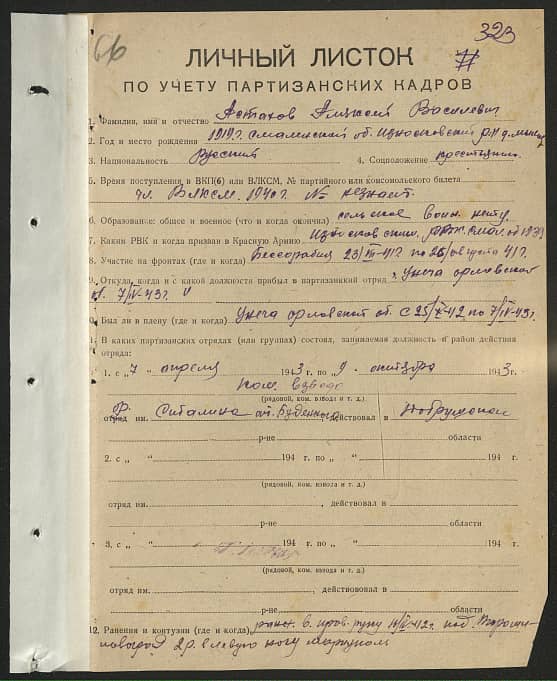 66
323
ЛИЧНЫЙ ЛИСТОК
ПО УЧЕТУ ПАРТИЗАНСКИХ КАДРОВ
1. Фамилия, имя и отчество Астахов Василевич
2. Год и место рождения 1919 г. об. р-н д.
3. Национальность Русский 4. Соцположение
5. Время поступления в ВКП(б) или ВЛКСМ, № партийного или комсомольского билета
чл. Влксм. 1940 г. №
6. Образование: общее и военное (что и когда окончил) сельское воен. нету
7. Каким РВК и когда призван в Красную Армию РВК. об 1939
8. Участие на фронтах (где и когда) Бессарабия 23/ -41г по 26/августа 41г.
9. Откуда, когда и с какой должности прибыл в партизанский отряд Унеча орловской
7/IV-43г.
10. Был ли в плену (где и когда) Унеча орловской об. с 25/ -42 по 7/IV-43г.
11. В каких партизанских отрядах (или группах) состоял, занимаемая должность и район действия
отряда:
1. с „7 апреля 1943 г. по „9 1943 г.
ком. взвода
(рядовой, ком. взвода и т. д.)
отряд им. Сталина от. Буденного действовал в
р-не области
2. с „ “ 194 г. по „ “ 194 г.
(рядовой, ком. взвода и т. д.)
отряд им. , действовал в
р-не области
3. с „ “ 194 г. по „ “ 194 г.
(рядовой, ком. взвода и т. д.)
отряд им. , действовал в
р-не области
12. Ранения и контузии (где и когда) в руку -42г. под
2 р. в левую ногу